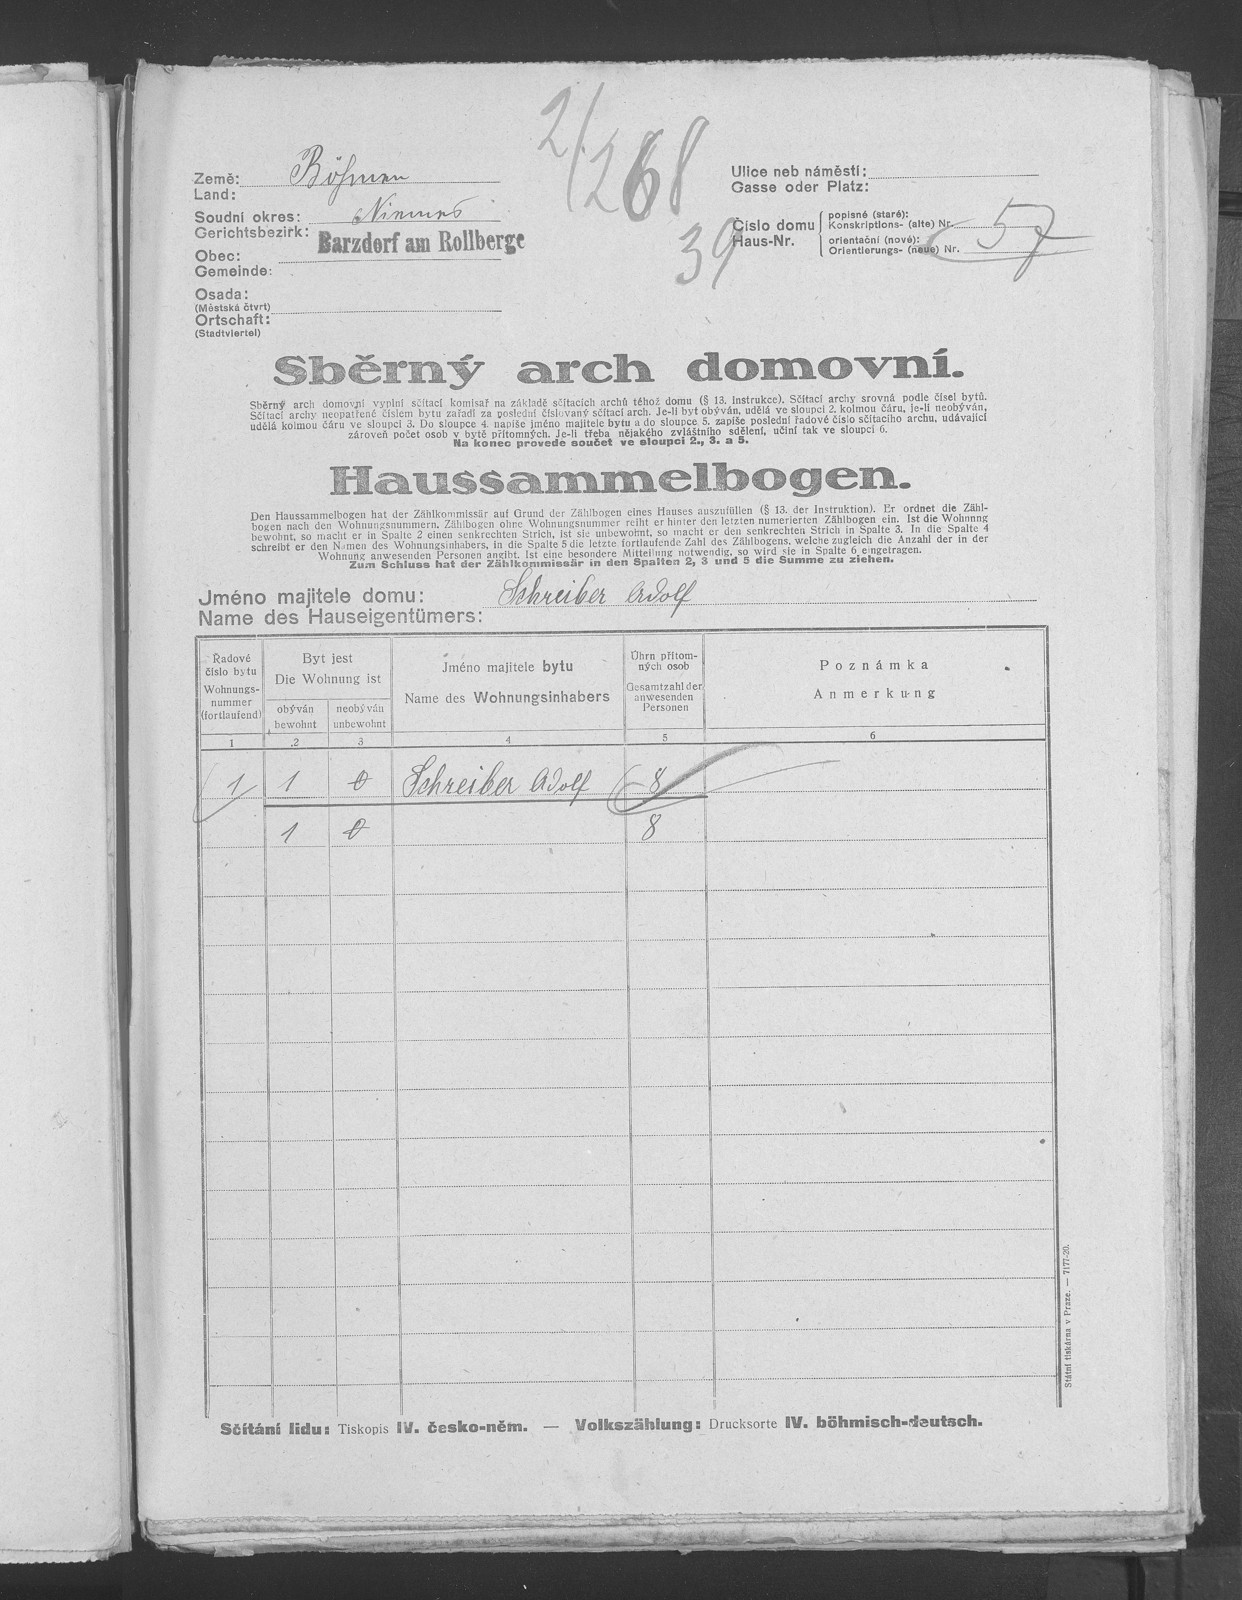 2/268
39
Země: Böhmen
Land:
Soudní okres: Niemes
Gerichtsbezirk:
Barzdorf am Rollberge
Obec:
Gemeinde:
Osada:
(Městská čtvrt)
Ortschaft:
(Stadtviertel)
Ulice neb náměstí:
Gasse oder Platz:
Číslo domu
Haus-Nr.
popisné (staré):
Konskriptions- (alte) Nr.
orientační (nové):
Orientierungs- (neue) Nr.
57
Sběrný arch domovní.
Sběrný arch domovní vyplní sčítací komisař na základě sčítacích archů téhož domu (§ 13. Instrukce). Sčítací archy srovná podle čísel bytů.
Sčítací archy neopatřené číslem bytu zařadí za poslední číslovaný sčítací arch. Je-li byt obýván, udělá ve sloupci 2. kolmou čáru, je-li neobýván,
udělá kolmou čáru ve sloupci 3. Do sloupce 4. napíše jméno majitele bytu a do sloupce 5. zapíše poslední řadové číslo sčítacího archu, udávající
zároveň počet osob v bytě přítomných. Je-li třeba nějakého zvláštního sdělení, učiní tak ve sloupci 6.
Na konec provede součet ve sloupci 2., 3. a 5.
Haussammelbogen.
Den Haussammelbogen hat der Zählkommissär auf Grund der Zählbogen eines Hauses auszufüllen (§ 13. der Instruktion). Er ordnet die Zähl-
bogen nach den Wohnungsnummern. Zählbogen ohne Wohnungsnummer reiht er hinter den letzten numerierten Zählbogen ein. Ist die Wohnnng
bewohnt, so macht er in Spalte 2 einen senkrechten Strich, ist sie unbewohnt, so macht er den senkrechten Strich in Spalte 3. In die Spalte 4
schreibt er den Namen des Wohnungsinhabers, in die Spalte 5 die letzte fortlaufende Zahl des Zählbogens, welche zugleich die Anzahl der in der
Wohnung anwesenden Personen angibt. Ist eine besondere Mitteilung notwendig, so wird sie in Spalte 6 eingetragen.
Zum Schluss hat der Zählkommissär in den Spalten 2, 3 und 5 die Summe zu ziehen.
Jméno majitele domu: Schreiber Adolf
Name des Hauseigentümers:
Řadové
číslo bytu
Wohnungs-
nummer
(fortlaufend)
Byt jest
Die Wohnung ist
obýván
bewohnt
neobýván
unbewohnt
Jméno majitele bytu
Name des Wohnungsinhabers
Úhrn přítom-
ných osob
Gesamtzahl der
anwesenden
Personen
Poznámka
Anmerkung
1 2 3 4 5 6
1 1 0 Schreiber Adolf 8
1 0 8
Státní tiskárna v Praze. — 7177-20.
Sčítání lidu: Tiskopis IV. česko-něm. — Volkszählung: Drucksorte IV. böhmisch-deutsch.